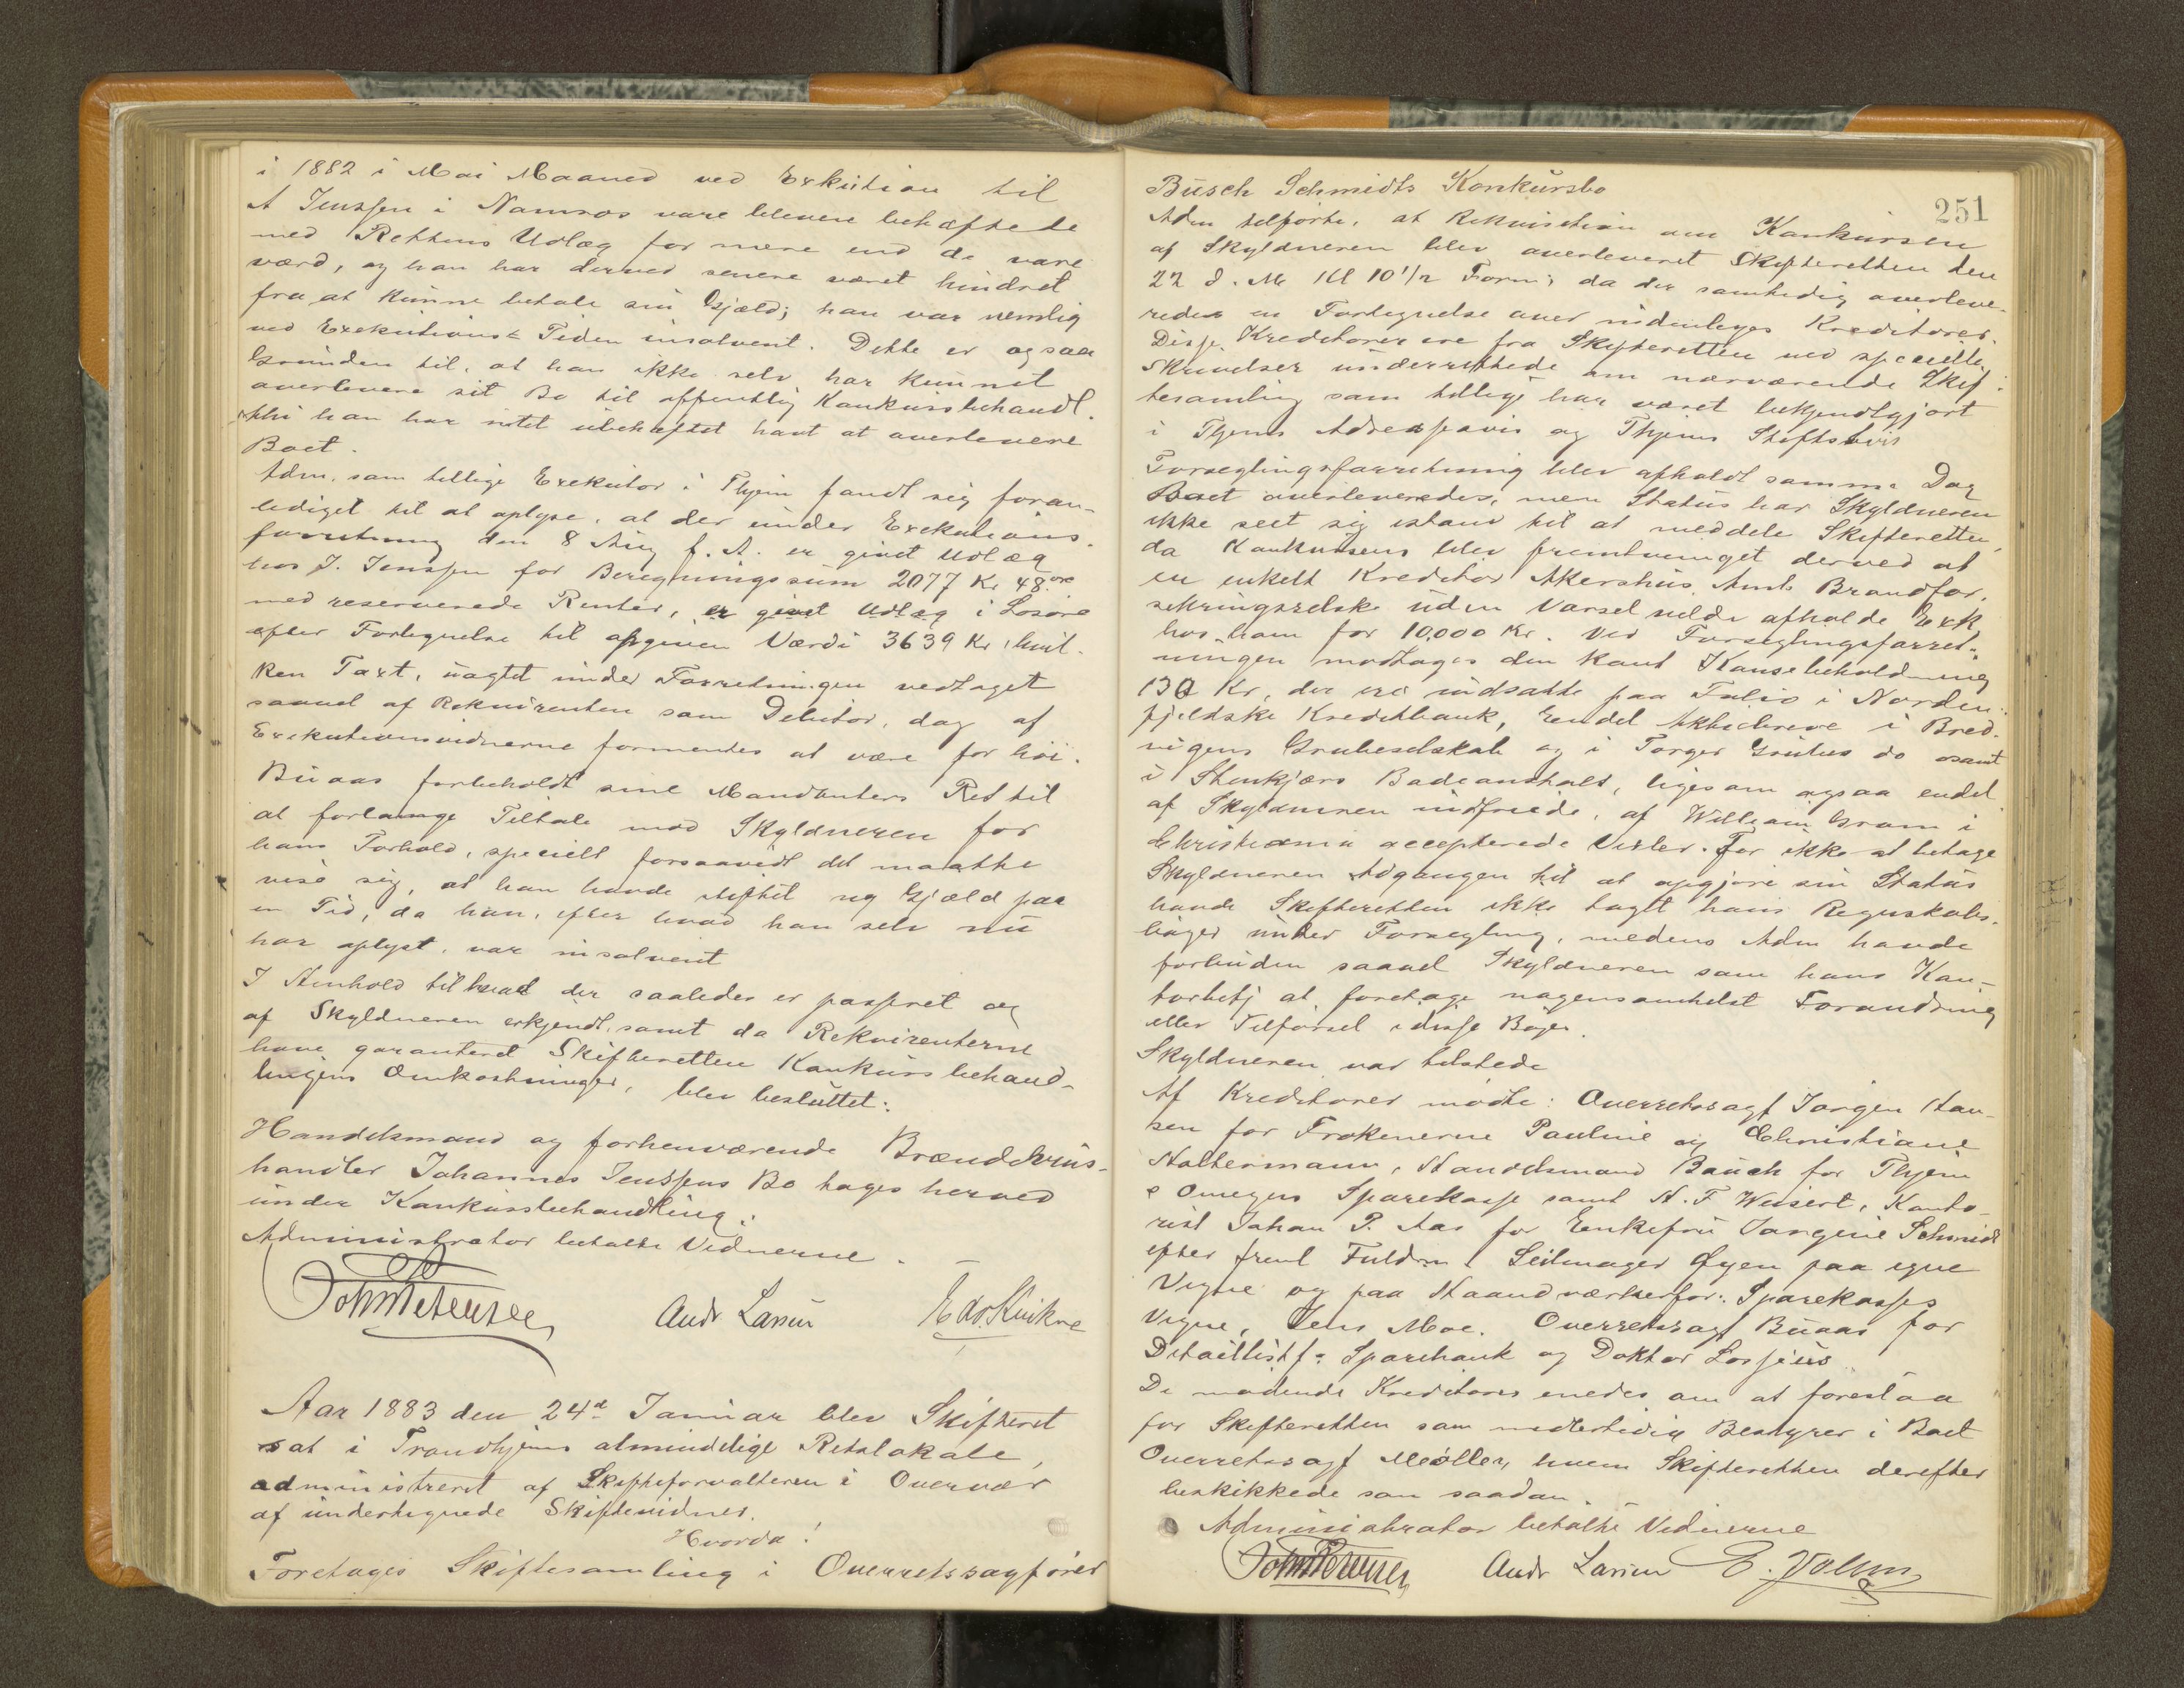 i 1882 i Mai Maaned ved Exkution til
A Jenssen i Namsos vare blevne behæftede
med Rettens Udlæg for mere end de vare
værd, og han har derved senere været hindret
fra at kunne betale sin Gjæld; han var nemlig
ved Exekutions Tiden insolvent. Dette er ogsaa
Grunden til, at han ikke selv har kunnet
overlevere sit Bo til offentlig Konkursbehandl.
thi han har intet ubehæftet havt at overlevere
Boet.
Adm. som tillige Exekutor i Thjem fandt sig foran-
lediget til at oplyse, at der under Exekutions-
forretning den 8 Aug f. A. er givet Udlæg
hos J. Jenssen for Beregningssum 2077 Kr 48 øre
med reserverede Renter, er givet Udlæg i Losøre
efter Fortegnelse til opgiven Værdi 3639 Kr, hvil-
ken Taxt, uagtet under Forretningen vedtaget
saavel af Rekvirenten som Debitor, dog af
Exekutionsvidnerne formentes at være for høi.
Buaas forbeholdt sine Mandanters Ret til
at forlange Tiltale mod Skyldneren for
hans Forhold, specielt forsaavidt det maatte
vise sig, at han havde stiftet ny Gjæld paa
en Tid, da han, efter hvad han selv nu
har oplyst, var insolvent
I Henhold til hvad der saaledes er passeret og
af Skyldneren erkjendt, samt da Rekvirenterne
have garanteret Skifteretten Konkursbehand-
lingens Omkostninger, blev besluttet:
Handelsmand og forhenværende Brændevins-
handler Johannes Jenssens Bo tages herved
under Konkursbehandling.
Administrator betalte Vidnerne.
Joh Petersen Andr Larsen Edv. Kvikne
Aar 1883 den 24d Januar blev Skifteret
sat i Trondhjems almindelige Retslokale,
administreret af Skifteforvalteren i Overvær
af undertegnede Skiftevidner.
Hvorda!
Foretoges Skiftesamling i Overretssagfører
251
Busch Schmidts Konkursbo
Adm tilførte, at Rekvisition om Konkursen
af Skyldneren blev overleveret Skifteretten den
22 d. M. Kl 10 1/2 Form; da der samtidig overleve-
redes en Fortegnelse over indenbyes Kreditorer.
Disse Kreditorer ere fra Skifteretten ved specielle
Skrivelser underrettede om nærværende Skif-
tesamling som tillige har været bekjendtgjort
i Thjems Adresseavis og Thjems Stiftsavis
Forseglingsforretning blev afholdt samme Dag
Boet overleveredes, men Status har Skyldneren
ikke seet sig istand til at meddele Skifteretten,
da Konkursen blev fremtvunget derved at
en enkelt Kreditor Akershus Amts Brandfor-
sikringsselsk uden Varsel vilde afholde Exk
hos ham for 10,000 Kr. Ved Forseglingsforret-
ningen modtoges den kont Kassebeholdning
130 Kr, der ere indsatte paa Folio i Norden-
fjeldske Kreditbank, Endel Aktiebreve i Bred-
vigens Grubeselskab og i Torger Grubes do samt
i Stenkjærs Badeanstalt, ligesom ogsaa endel
af Skyldneren indfriede, af William Gram i
Christiania accepterede Vexler. For ikke at betage
Skyldneren Adgangen til at opgjøre sin Status
havde Skifteretten ikke taget hans Regnskabs-
bøger under Forsegling, medens Adm havde
forbuden saavel Skyldneren som hans Kon-
torbetj at foretage nogensomhelst Forandring
eller Tilførsel i disse Bøger.
Skyldneren var tilstede
Af Kreditorer mødte: Overretssagf Jørgen Han-
sen for Frøkenerne Pauline og Christiane
Haltermann, Handelsmand Bauck for Thjem
& Omegns Sparekasse samt H. F. Weisert, Konto-
rist Johan P. Aas for Enkefru Jørgine Schmidt
efter freml Fuldm, Seilmager Øyen paa egne
Vegne og paa Haandværkerfor: Sparekasses
Vegne, Jens Moe. Overretssagf Buaas for
Detaillistf: Sparebank og Doktor Lossius
De mødende Kreditorer enedes om at foreslaa
for Skifteretten som midlertidig Bestyrer i Boet
Overretssagf Møller, hvem Skifteretten derefter
beskikkede som saadan.
Administrator betalte Vidnerne
Joh Petersen Andr Larsen